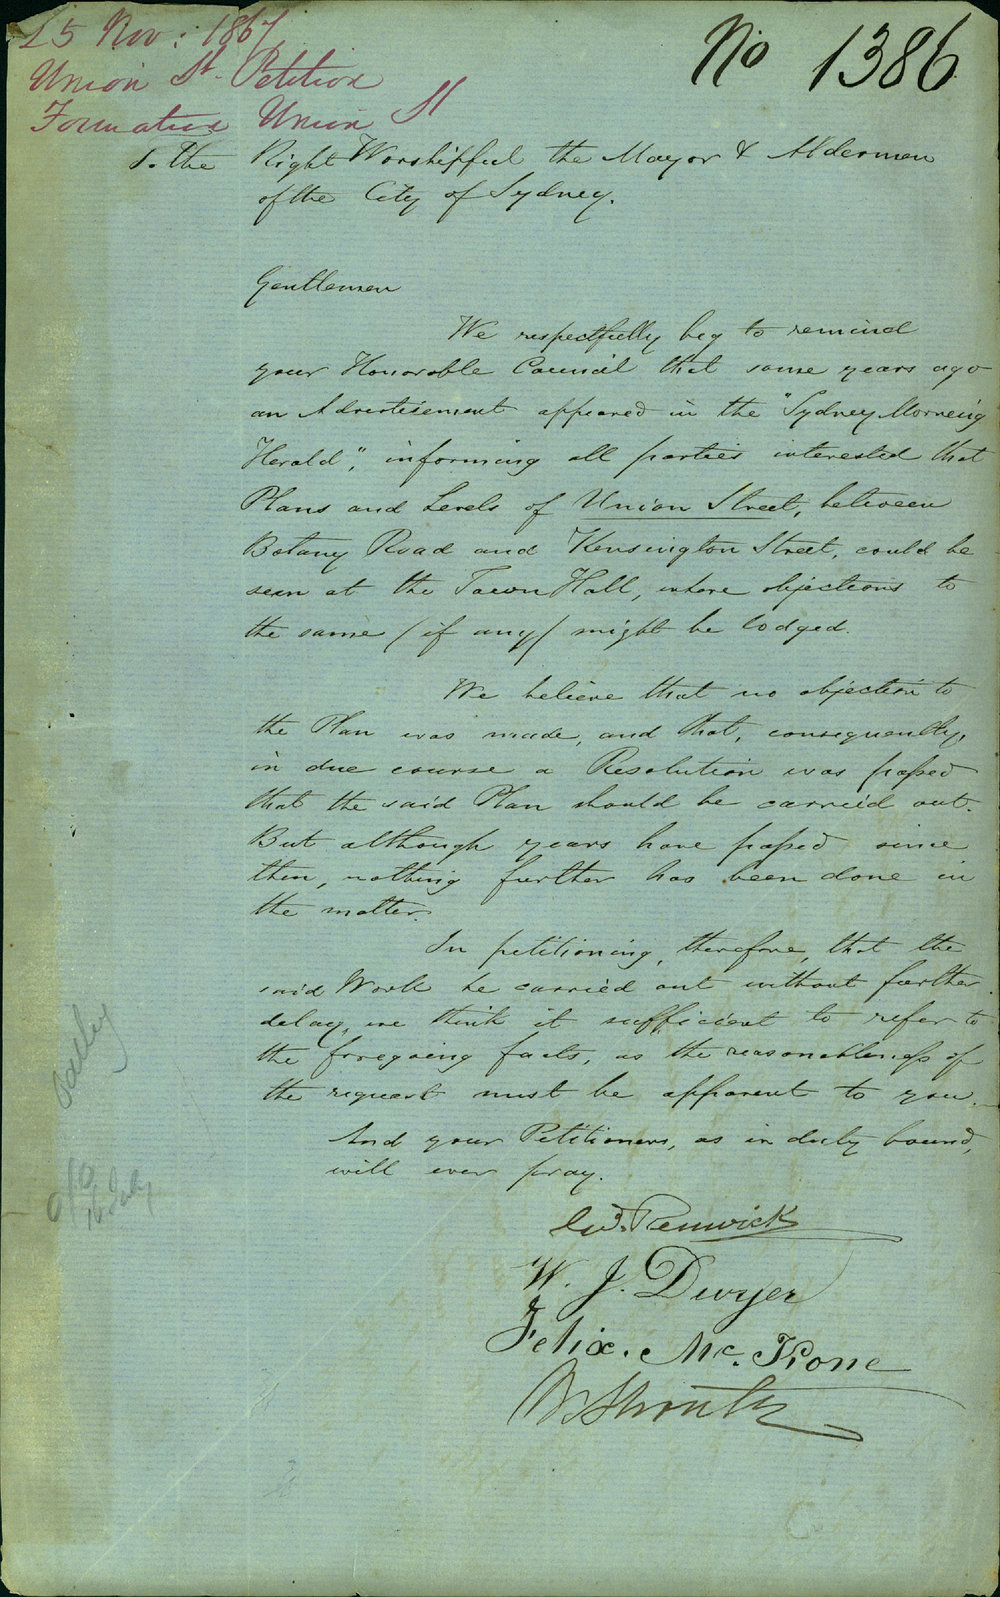 25 Nov: 1867
No 1386
Union St. Petition
Formation Union St
To the Right Worshipful the Mayor & Aldermen
of the City of Sydney.
Gentlemen
We respectfully beg to remind
your Honorable Council that some years ago
an Advertisement appeared in the "Sydney Morning
Herald", informing all parties interested that
Plans and Levels of Union Street, between
Botany Road and Kensington Street, could be
seen at the Town Hall, where objections to
the same (if any) might be lodged.
We believe that no objection to
the Plan was made, and that, consequently,
in due course a Resolution was passed
that the said Plan should be carried out.
But although years have passed since
then, nothing further has been done in
the matter.
In petitioning, therefore, that the
said Work be carried out without further
delay, we think it sufficient to refer to
the foregoing facts, as the reasonableness of
the request must be apparent to you.
And your Petitioners, as in duty bound,
will ever pray.
Renwick
W. J. Dwyer
Felix. Mc. Kone